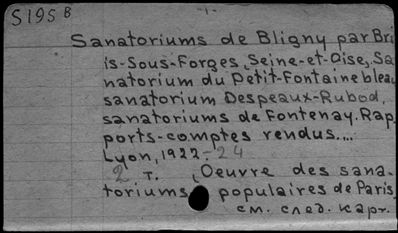 S195 B
-1-
Sanatoriums de Bligny par Bri
is-Sous-Forges, Seine-et-Oise, Sa
natorium du Petit-Fontaineblea
sanatorium Despeaux-Rubod,
sanatoriums de Fontenay. Rap
ports-comptes rendus....
Lyon, 1922-24
2 т. (Oeuvre des sana-
toriums populaires de Paris
см. след. карт.